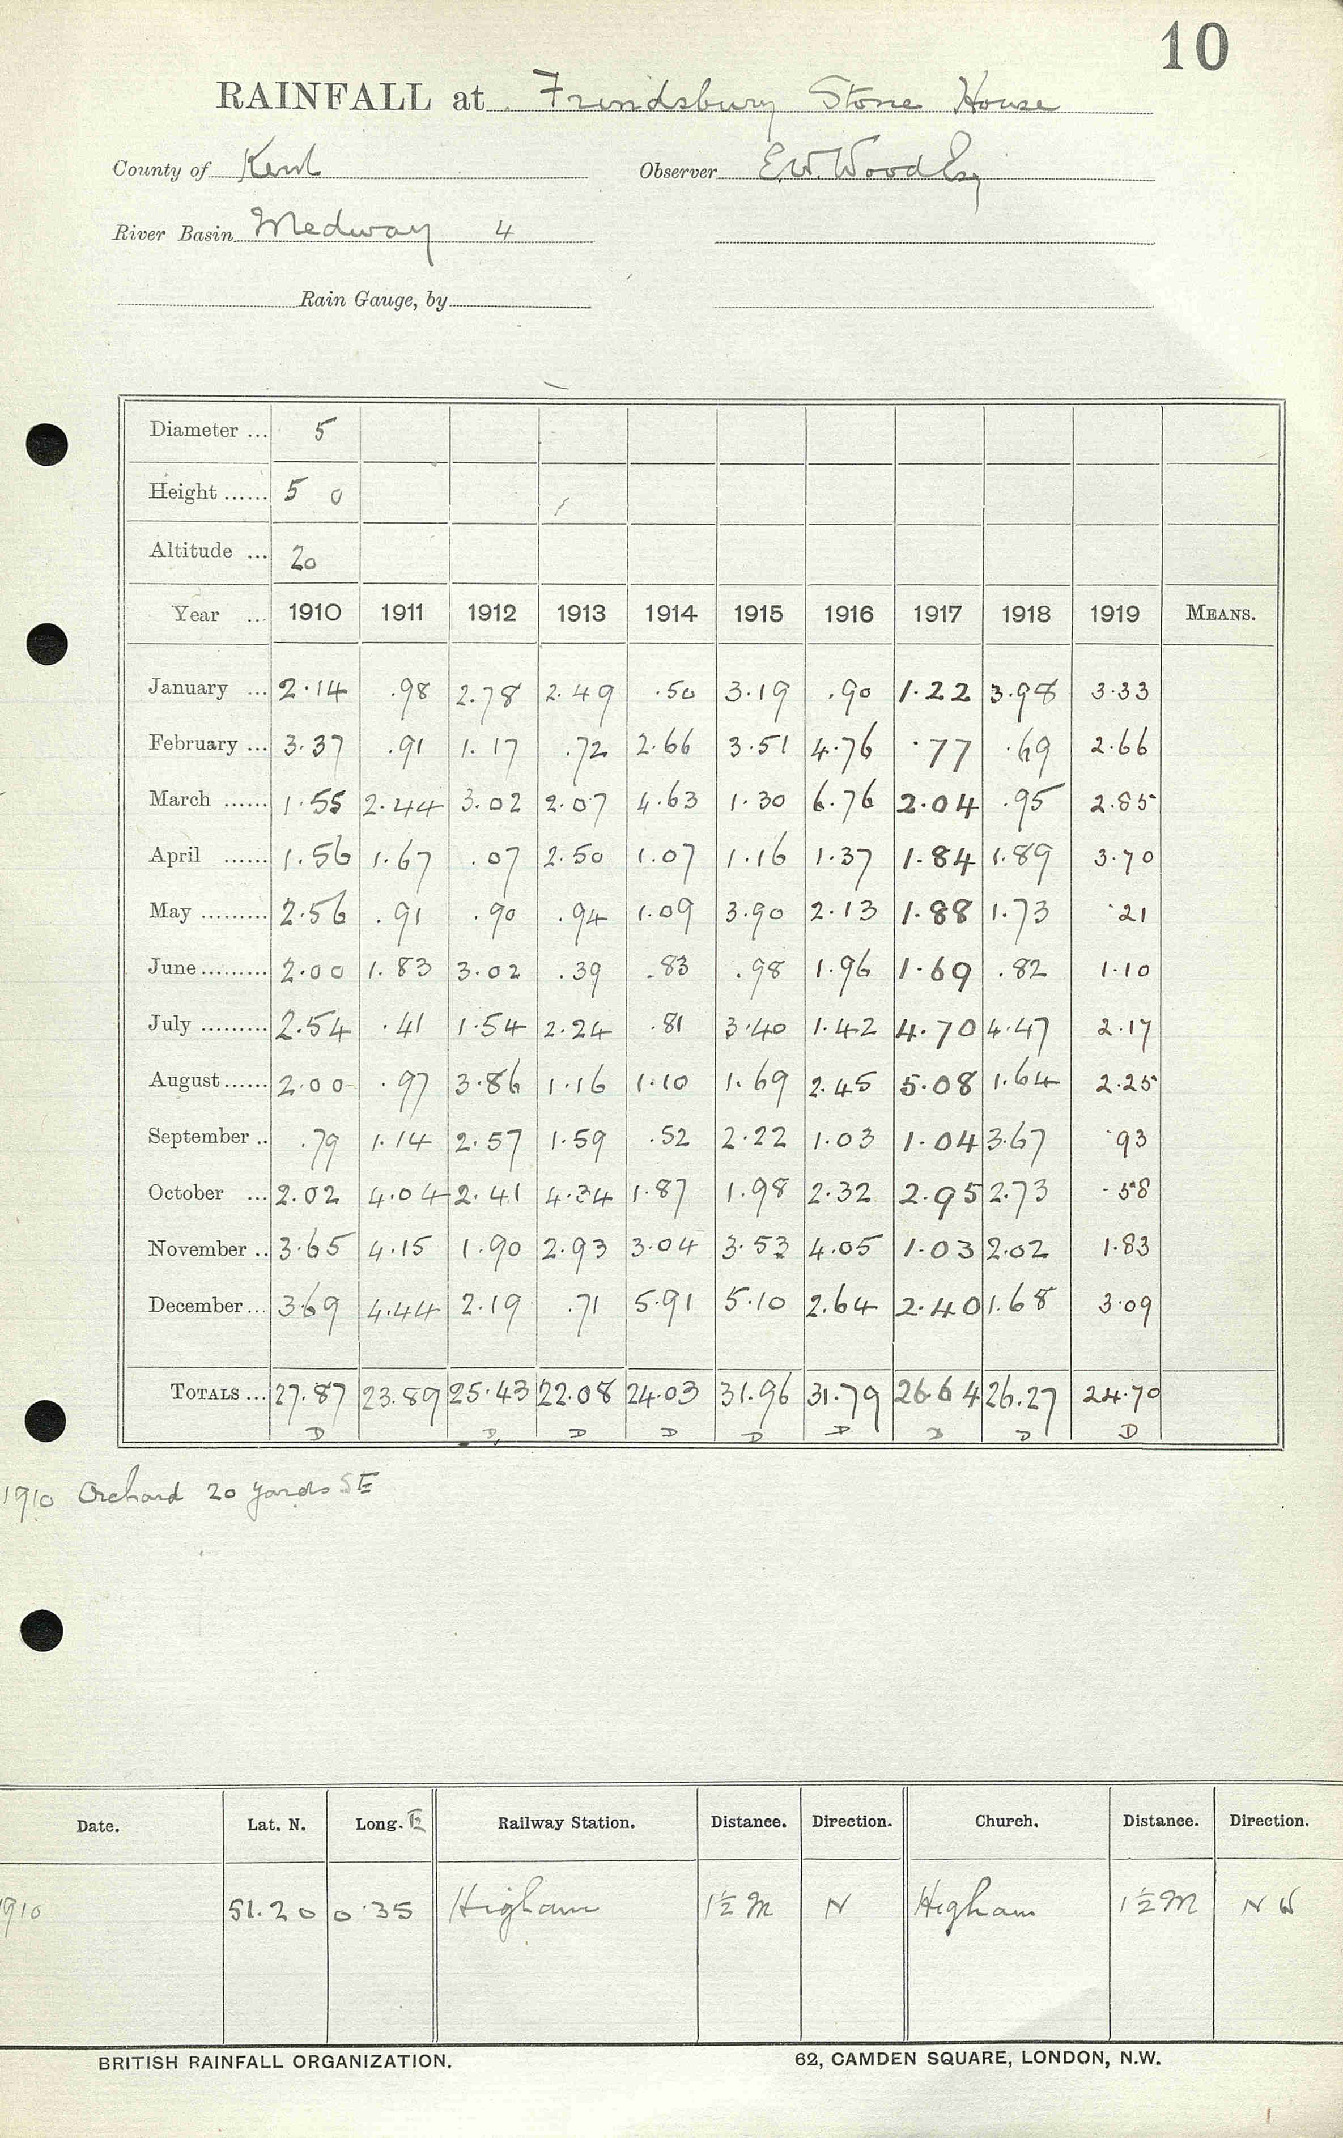 10
RAINFALL at Frindsbury Stone House
County of Kent Observer E.W. Wood Esq
River Basin Medway 4
Rain Gauge, by
Diameter ... 5
Height ...... 5 0
Altitude ... 20
Year ... 1910 1911 1912 1913 1914 1915 1916 1917 1918 1919 MEANS.
January ... 2.14 .98 2.78 2.49 .50 3.19 .90 1.22 3.98 3.33
February ... 3.37 .91 1.17 .72 2.66 3.51 4.76 .77 .69 2.66
March ...... 1.55 2.44 3.02 2.07 4.63 1.30 6.76 2.04 .95 2.85
April ...... 1.56 1.67 .07 2.50 1.07 1.16 1.37 1.84 1.89 3.70
May ......... 2.56 .91 .90 .94 1.09 3.90 2.13 1.88 1.73 .21
June ......... 2.00 1.83 3.02 .39 .83 .98 1.96 1.69 .82 1.10
July ......... 2.54 .41 1.54 2.24 .81 3.40 1.42 4.70 4.47 2.17
August ...... 2.00 .97 3.86 1.16 1.10 1.69 2.45 5.08 1.64 2.25
September .. .79 1.14 2.57 1.59 .52 2.22 1.03 1.04 3.67 .93
October ... 2.02 4.04 2.41 4.34 1.87 1.98 2.32 2.95 2.73 .58
November .. 3.65 4.15 1.90 2.93 3.04 3.53 4.05 1.03 2.02 1.83
December ... 3.69 4.44 2.19 .71 5.91 5.10 2.64 2.40 1.68 3.09
TOTALS ... 27.87 23.89 25.43 22.08 24.03 31.96 31.79 26.64 26.27 24.70
D D D D D D D D D
1910 Orchard 20 yards SE
Date. Lat. N. Long. E Railway Station. Distance. Direction. Church. Distance. Direction.
1910 51.20 0.35 Higham 1½ M N Higham 1½ M NW
BRITISH RAINFALL ORGANIZATION. 62, CAMDEN SQUARE, LONDON, N.W.